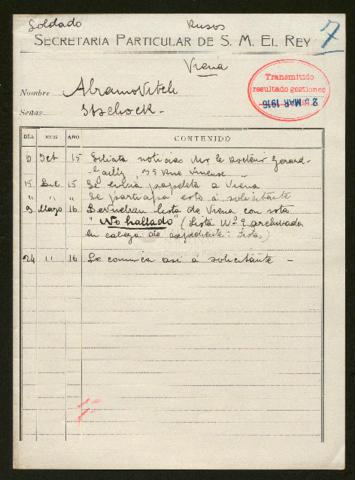 Soldado Rusos 7
SECRETARIA PARTICULAR DE S. M. EL REY
Viena
Transmitido
resultado gestiones
2 MAR 1916
Nombre Abramovitch
Señas Itzchock -
DÍA MES AÑO CONTENIDO
Oct 15 Solicita noticias Mr le Docteur Gerard-
15 15 Se envia papeleta a Viena
" " " Se participa esto á solicitante
9 Marzo 16 Devuelven lista de Viena con nota
"No hallado" (Lista Nº 2 archivada
en cabeza de expediente: Lista)
24 " 16 Se comunica asi á solicitante -